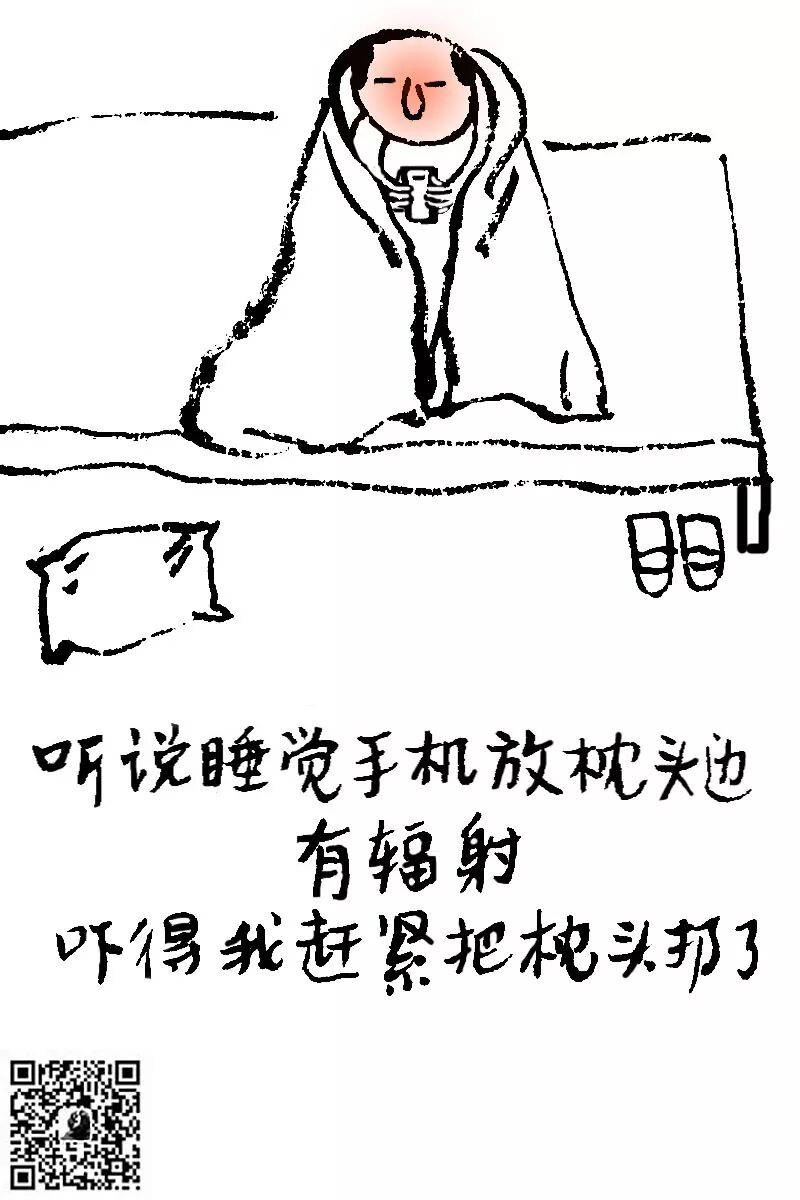 听说睡觉手机放枕头边
有辐射
吓得我赶紧把枕头扔了